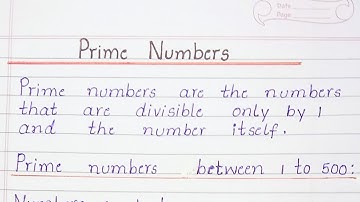 Date
Page
Prime Numbers
Prime numbers are the numbers
that are divisible only by 1
and the number itself.
Prime numbers between 1 to 500: